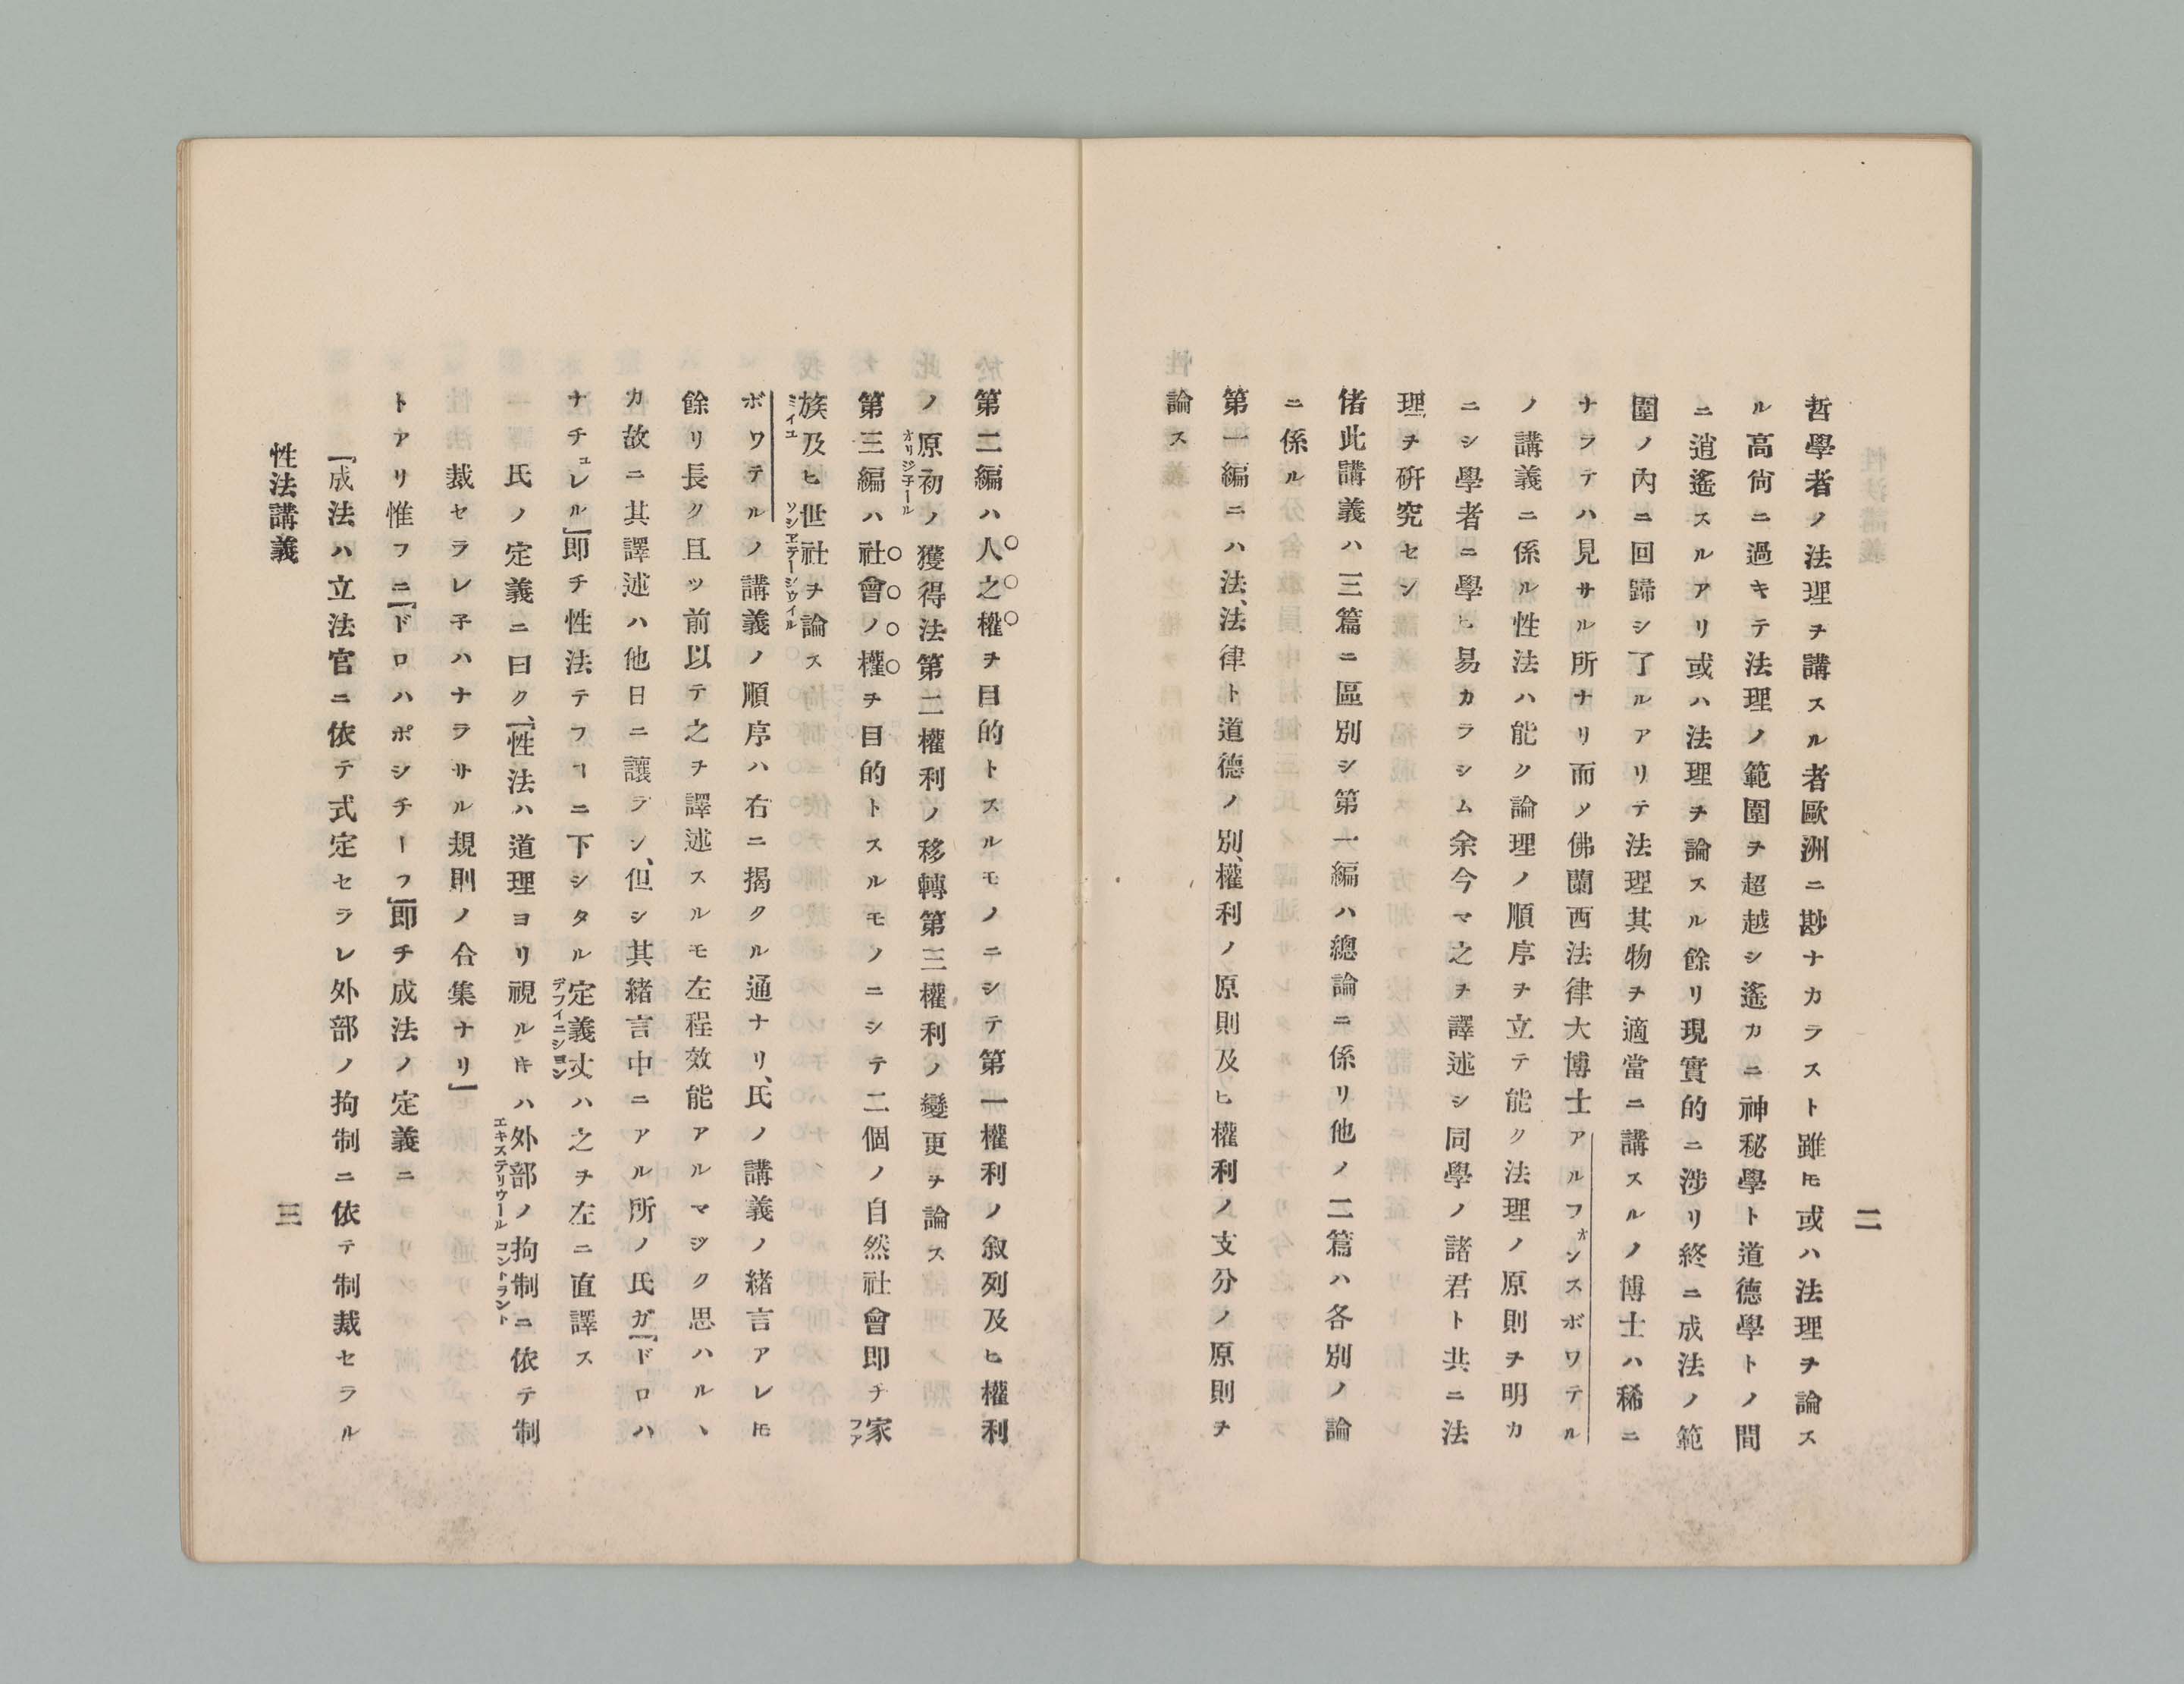 二
哲學者ノ法理ヲ講スル者歐洲ニ尠ナカラスト雖𪜈或ハ法理ヲ論ス
ル高尙ニ過キテ法理ノ範圍ヲ超越シ遙カニ神秘學ト道德學トノ間
ニ逍遙スルアリ或ハ法理ヲ論スル餘リ現實的ニ涉リ終ニ成法ノ範
圍ノ內ニ回歸シ了ルアリテ法理其物ヲ適當ニ講スルノ博士ハ稀ニ
ナラテハ見サル所ナリ而ノ佛蘭西法律大博士アルフォンスボワテル
ノ講義ニ係ル性法ハ能ク論理ノ順序ヲ立テ能ク法理ノ原則ヲ明カ
ニシ學者ニ學ヒ易カラシム余今マ之ヲ譯述シ同學ノ諸君ト共ニ法
理ヲ硏究セン
偖此講義ハ三篇ニ區別シ第一編ハ總論ニ係リ他ノ二篇ハ各別ノ論
ニ係ル
第一編ニハ法、法律ト道德ノ別、權利ノ原則及ヒ權利ノ支分ノ原則ヲ
論ス
第二編ハ人之權ヲ目的トスルモノニシテ第一權利ノ叙列及ヒ權利
ノ原初ノ獲得法第二權利ノ移轉第三權利ノ變更ヲ論ス
オリジ子ール
第三編ハ社會ノ權ヲ目的トスルモノニシテ二個ノ自然社會卽チ家
ファ
族及ヒ世社ヲ論ス
ミイユ ソシヱテーシウイル
ボワテルノ講義ノ順序ハ右ニ揭クル通ナリ、氏ノ講義ノ緖言アレ𪜈
餘リ長ク且ツ前以テ之ヲ譯述スルモ左程效能アルマジク思ハルヽ
カ故ニ其譯述ハ他日ニ讓ラン、但シ其緖言中ニアル所ノ氏ガ「ドロハ
ナチュレル」卽チ性法テフヿニ下シタル定義丈ハ之ヲ左ニ直譯ス
デフイニシヨン
氏ノ定義ニ曰ク、「性法ハ道理ヨリ視ル𪜈ハ外部ノ拘制ニ依テ制
エキステリウール コントラント
裁セラレ子ハナラサル規則ノ合集ナリ」
トアリ惟フニ「ドロハポシチーフ」卽チ成法ノ定義ニ
「成法ハ立法官ニ依テ式定セラレ外部ノ拘制ニ依テ制裁セラル
性法講義
三